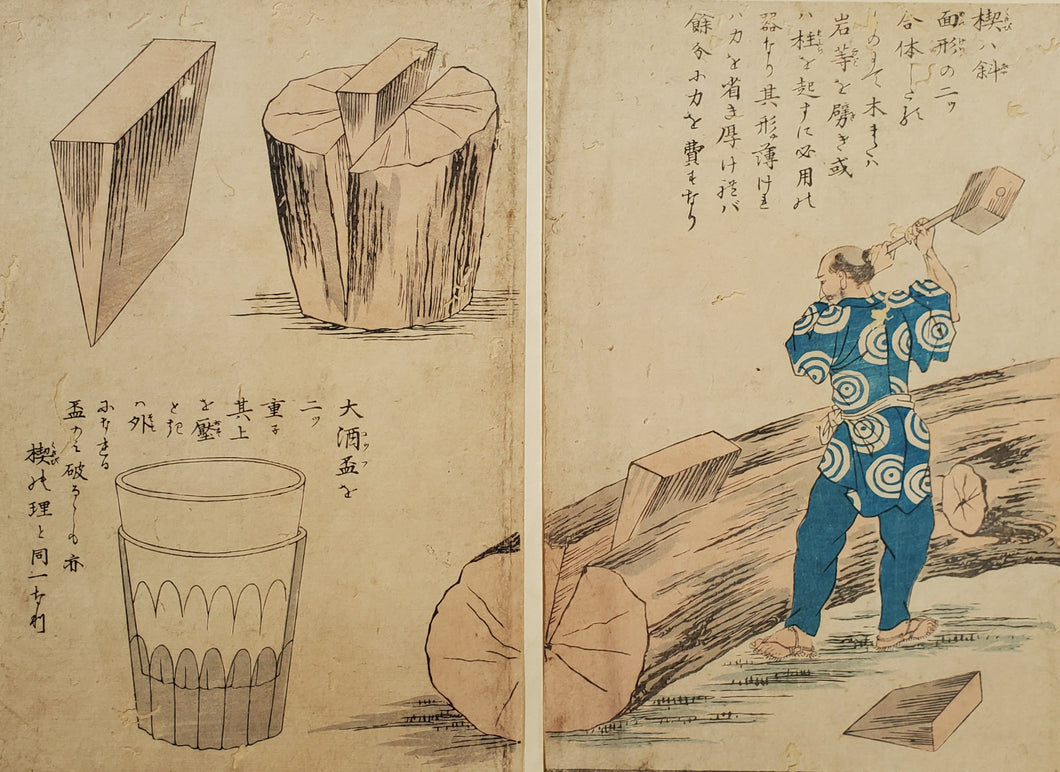 楔ハ斜
面形の二ッ
合体したる
ものにて木または
岩等を劈き或
ハ柱を起すに必用の
器なり其形薄けれ
ハ力を省き厚けれバ
餘分に力を費すなり
大酒盃を
二ッ
重子
其上
を壓
とき
ハ外
になれる
盃のミ破るゝも亦
楔の理と同一なり